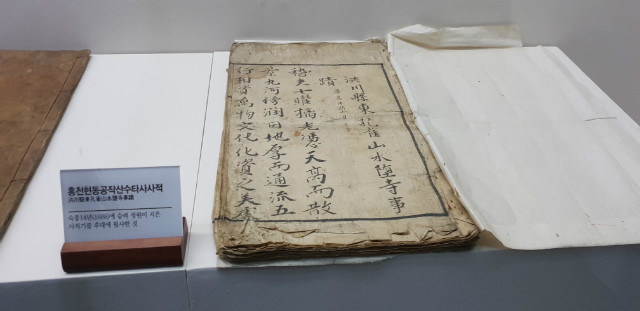 洪川縣東孔雀山水墮寺事
蹟
夫十曜摛光憑天高而散
景九河 潤因地厚而通流五
行相資萬物 代化資之
홍천현동공작산수타사사적
洪川縣東孔雀山水墮寺事蹟
숙종14년(1688)에 승려 정원이 지은
사적기를 후대에 필사한 것